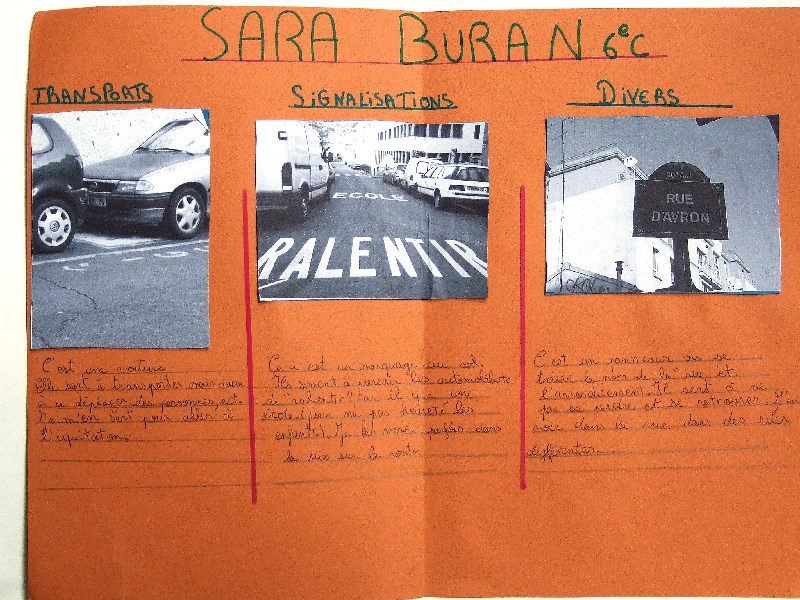 SARA BURAN 6eC
TRANSPORTS
C'est une voiture
Elle sert à transporter mais aussi
à se déplacer des personnes, et
l'équitation.
SiGNALISATIONS
ECOLE
RALENTIR
Ceci est un marquage au sol.
Ils servent à prévenir les automobiliste
de "ralentir" car il y a une
école (pour ne pas heurté les
enfants). Je les vois parfois dans
la rue sur la route
DiVERS
RUE
D'AVRON
C'est un panneaux ou se
trouve le nom de la rue et
l'arrondissement. Il sert à ne
pas se perdre et se retrouver.
voir dans la rue, dans des rues
différentes.